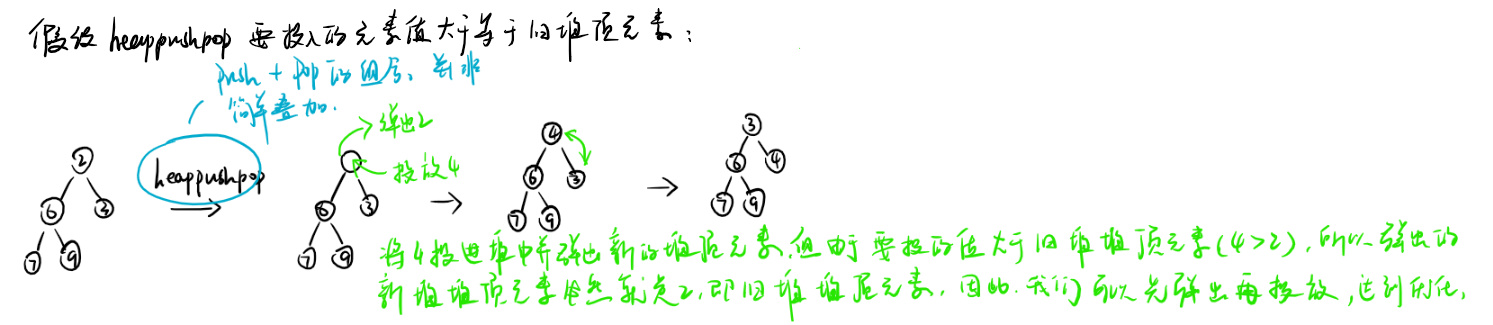 假设 heappushpop 要投入的元素值大于等于旧堆顶元素：
push + pop 的组合，并非
简单叠加.
弹出2
投放4
heappushpop
2
6 3
7 9
6 3
7 9
4
6 3
7 9
3
6 4
7 9
将4投进堆中并弹出新的堆顶元素,但由于要投的值大于旧堆堆顶元素(4>2),所以弹出的
新堆堆顶元素必然就是2,即旧堆堆顶元素,因此,我们可以先弹出再投放,达到优化,